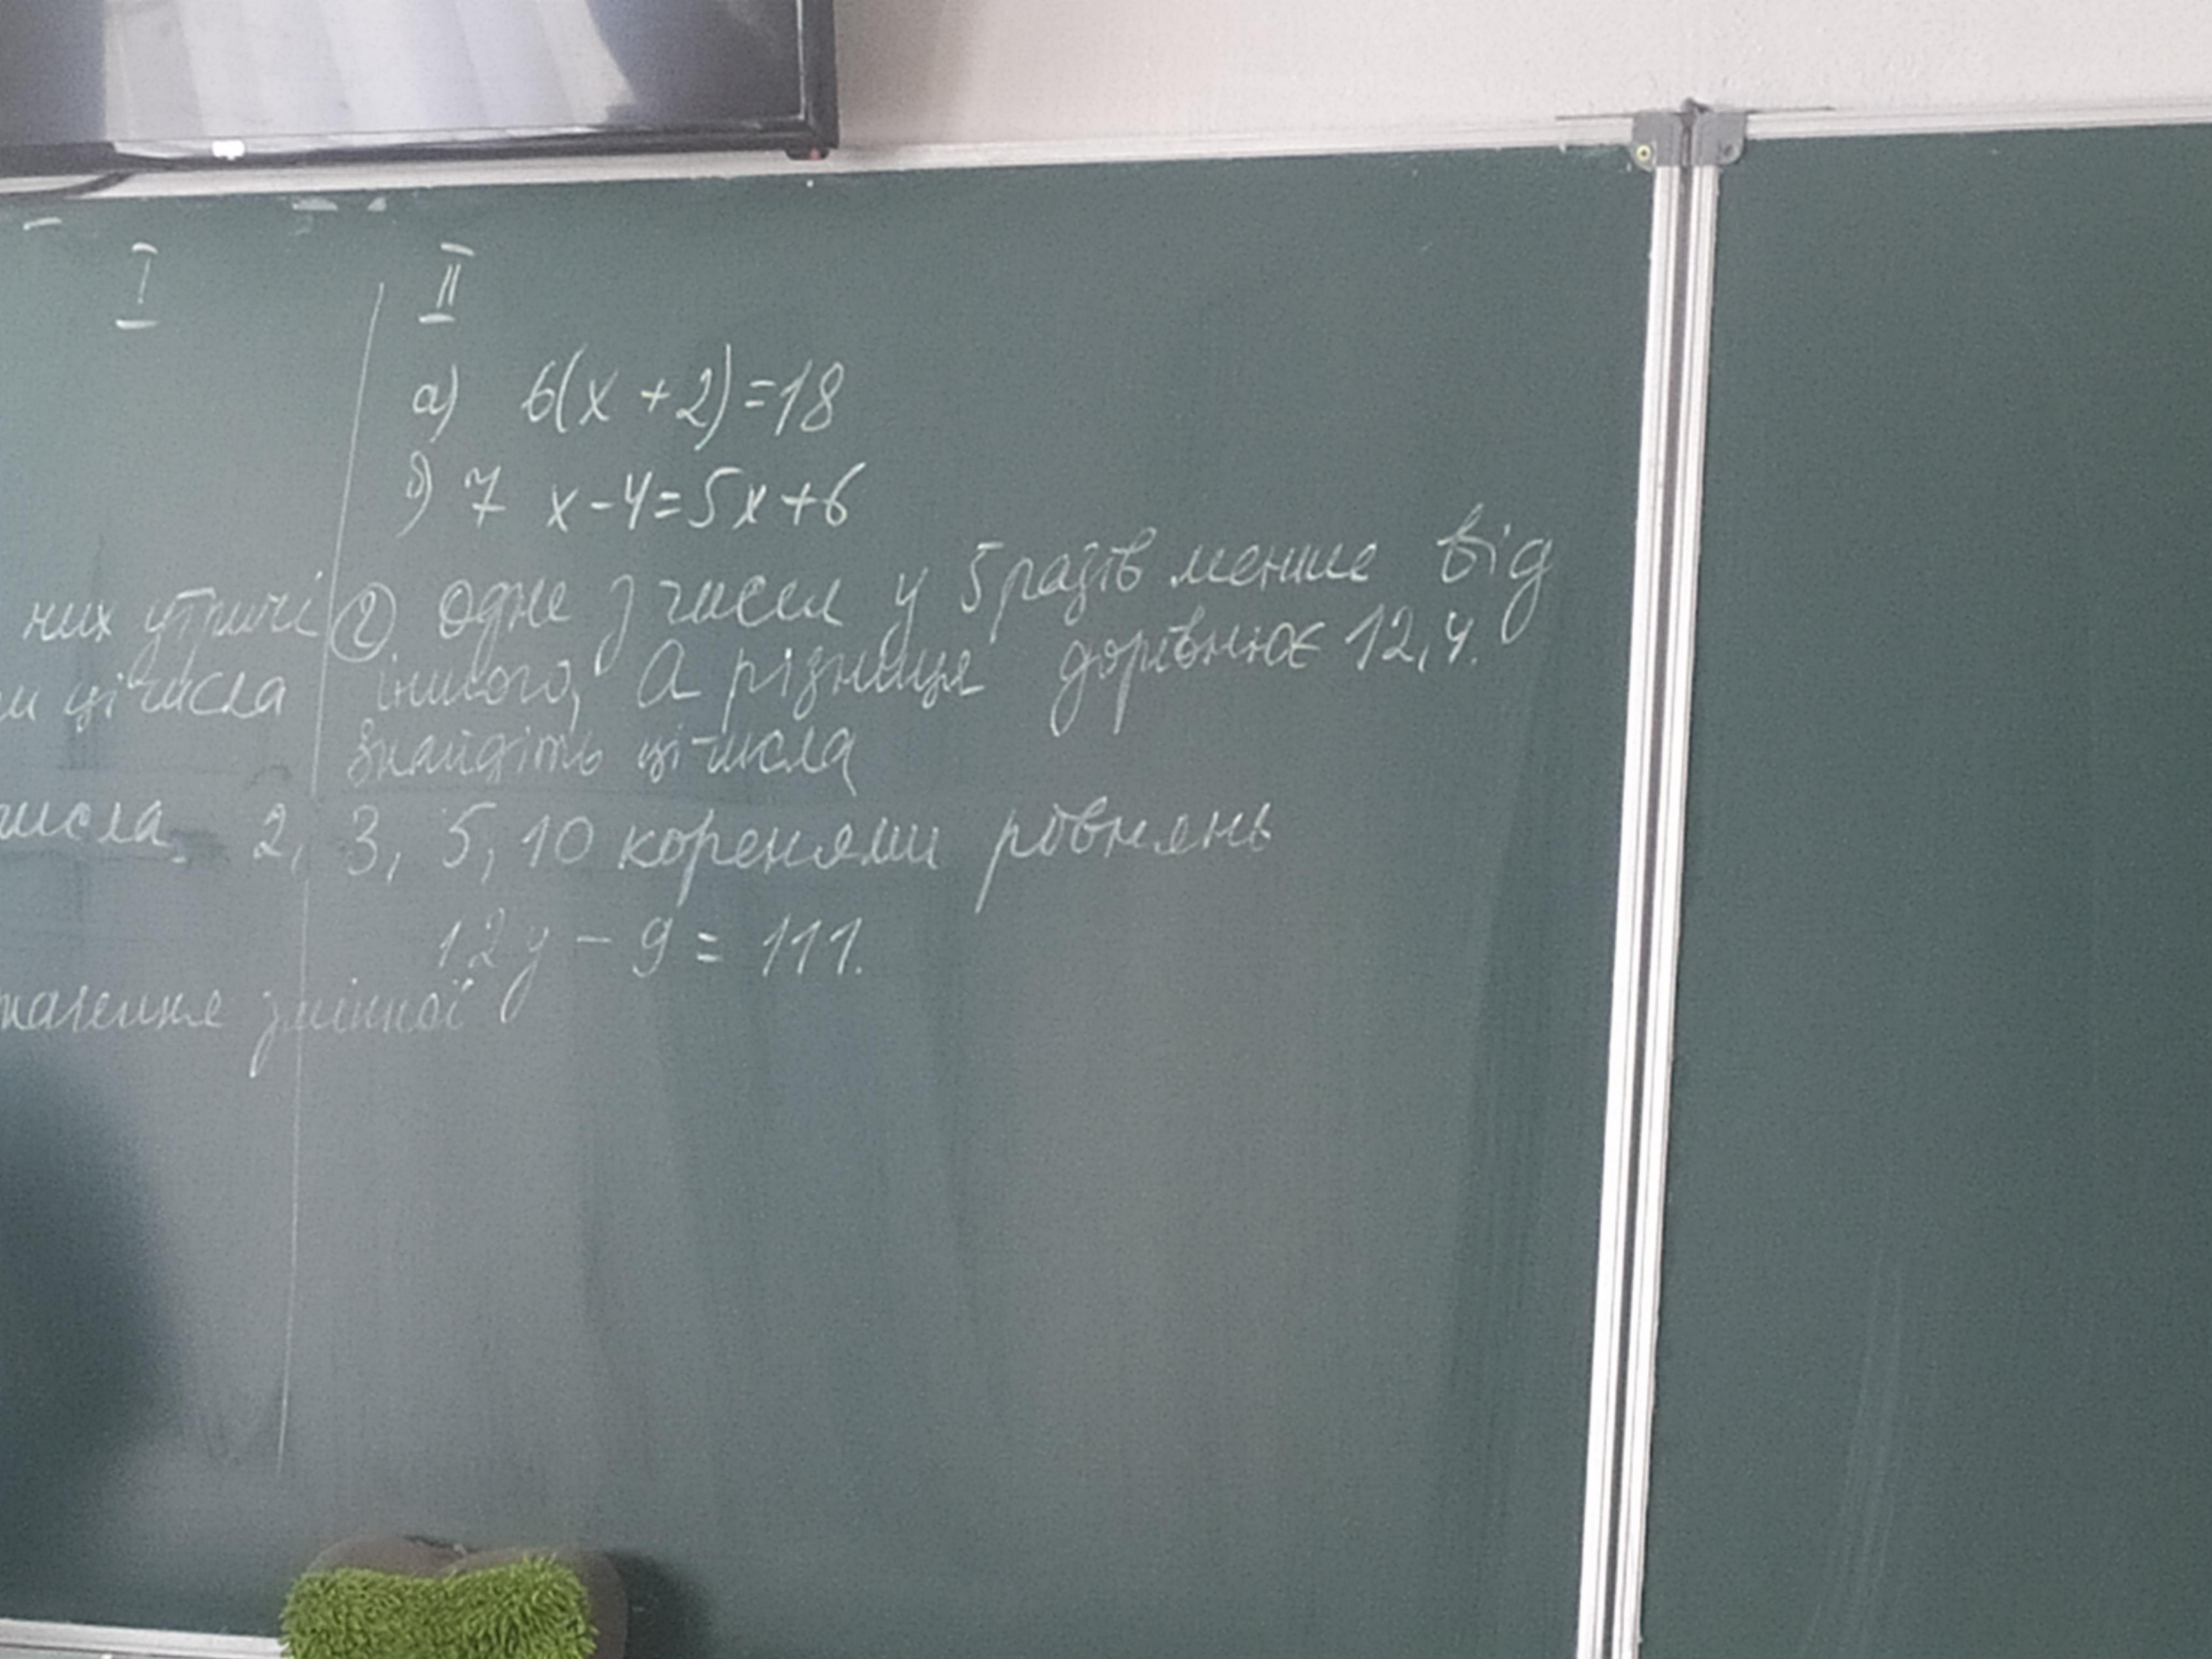 I II
а) 6(x + 2) = 18
б) 7 x - 4 = 5x + 6
них утричі ② Одне з чисел у 5 разів менше від
ці числа іншого, а різниця дорівнює 12,4.
Знайдіть ці числа
числа 2, 3, 5, 10 коренями рівнянь
12y - 9 = 111.
значення змінної